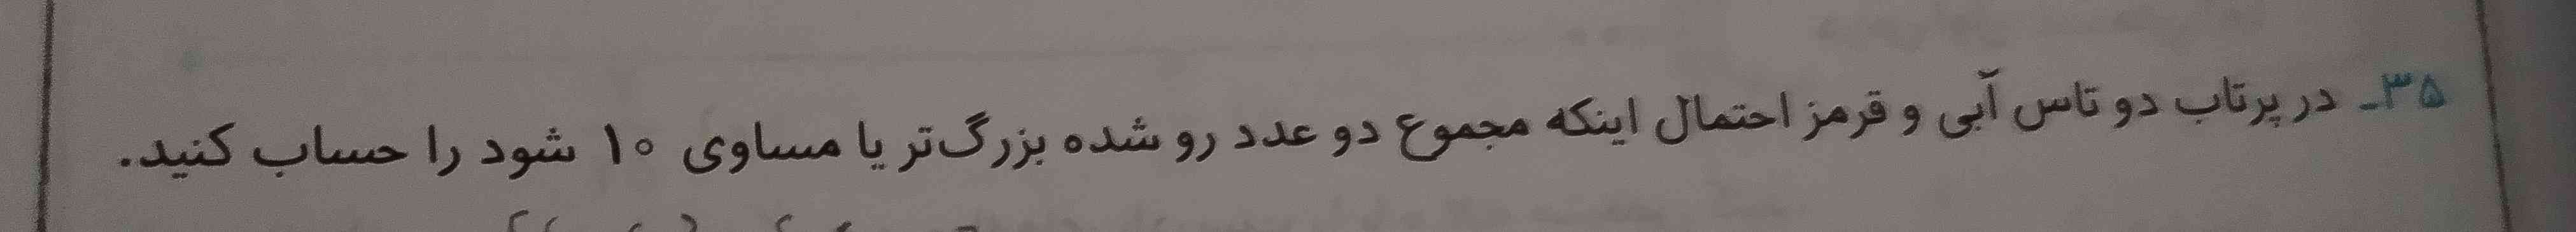 ۳۵- در پرتاب دو تاس آبی و قرمز احتمال اینکه مجموع دو عدد رو شده بزرگ‌تر یا مساوی ۱۰ شود را حساب کنید.